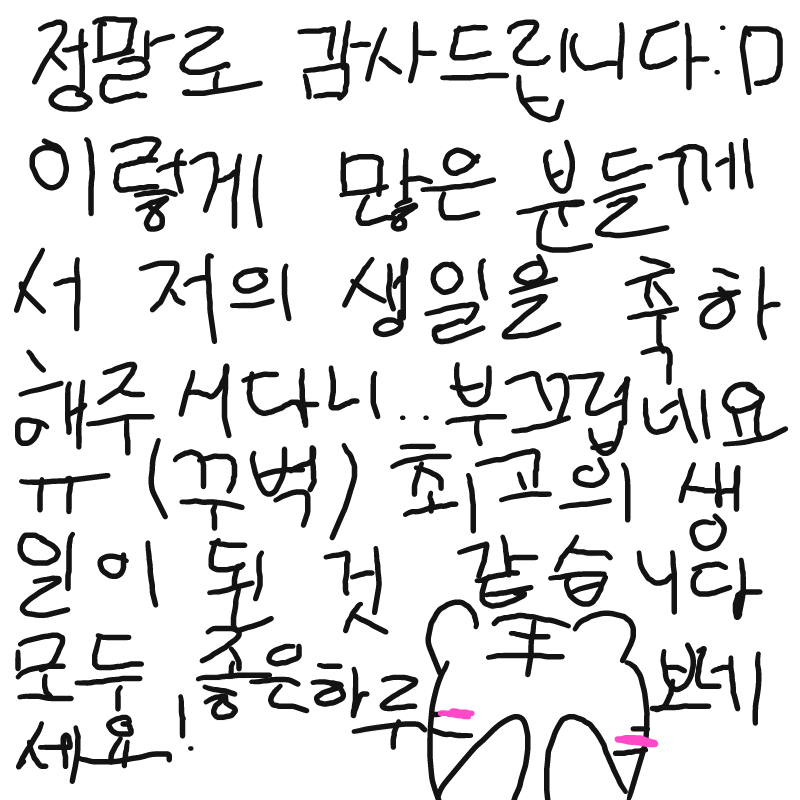 정말로 감사드립니다:D
이렇게 많은 분들께
서 저의 생일을 축하
해주 서다니.. 부끄럽네요
ㅠ (꾸벅) 최고의 생
일이 된 것 같습니다
모두 좋은하루 보네
세요!